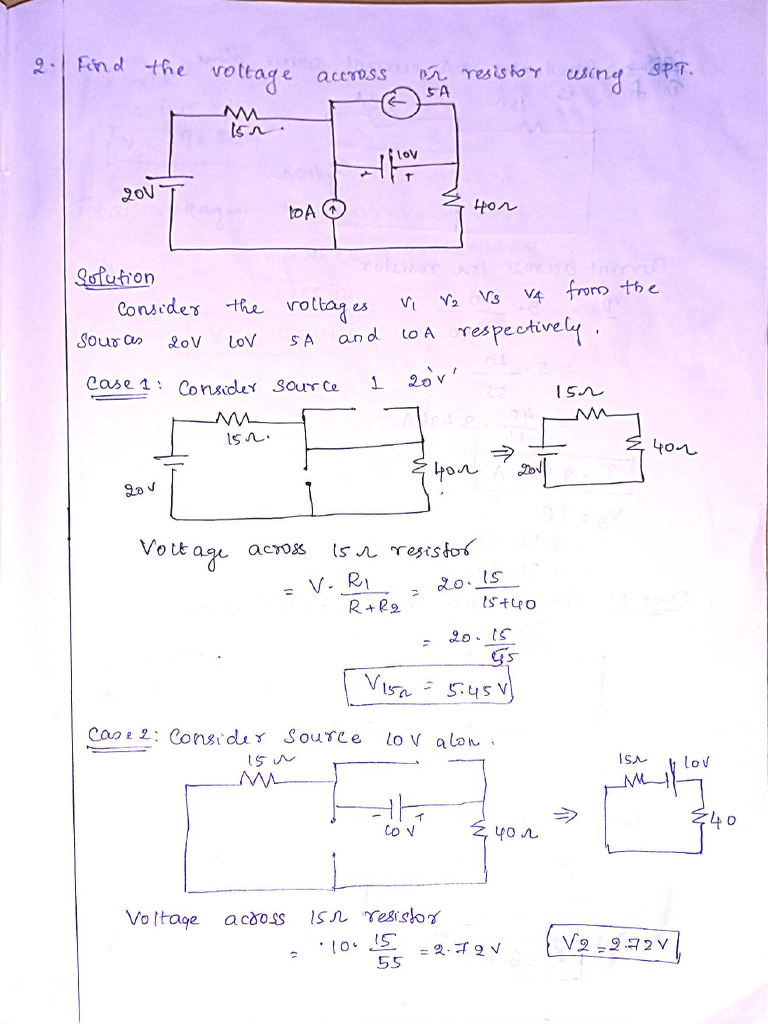 2. Find the voltage accross 15Ω resistor using SPT.
5A
15Ω
10V
- +
20V
10A
40Ω
Solution
Consider the voltages V1 V2 V3 V4 from the
sources 20V 10V 5A and 10A respectively.
Case 1: Consider source 1 20'V'
15Ω
15Ω
40Ω
⇒
40Ω
20V
20V
Voltage across 15Ω resistor
= V. R1/R+R2 = 20. 15/15+40
= 20. 15/55
V15Ω = 5.45V
Case 2: Consider Source 10V alon.
15Ω
15Ω
10V
- +
10V
40Ω
⇒
40
Voltage across 15Ω resistor
= 10. 15/55 = 2.72V
V2 = 2.72V